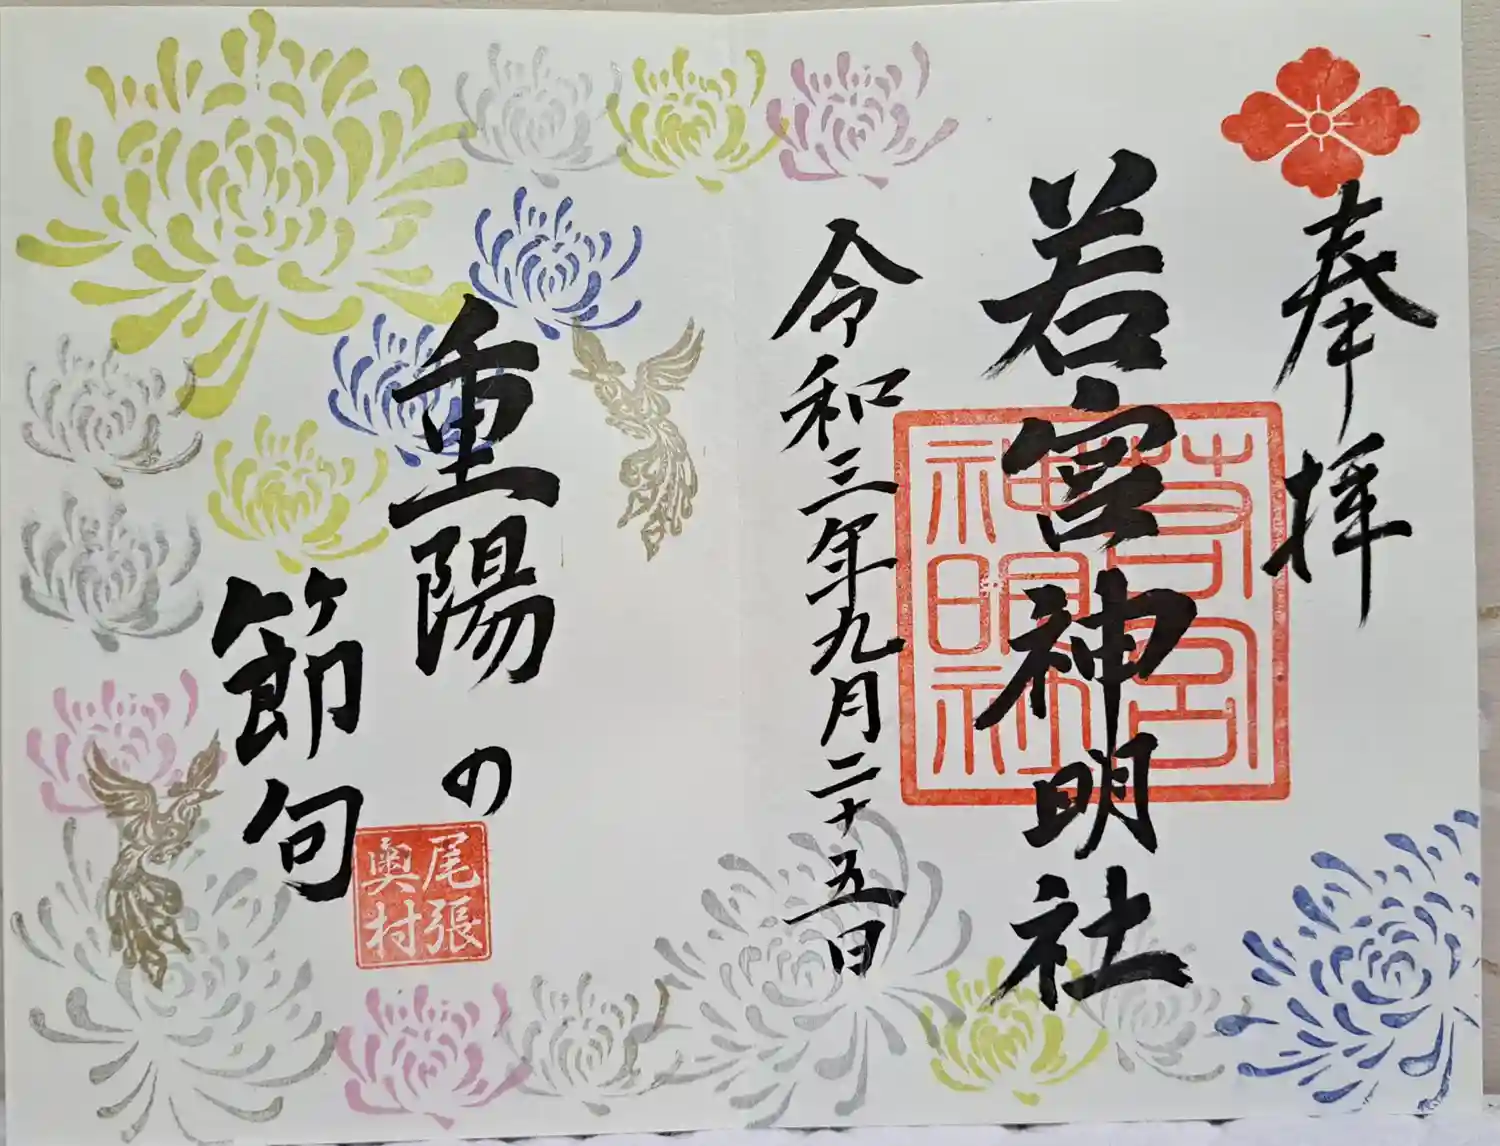 奉拝
若宮神明社
令和三年九月二十五日
重陽の
節句
尾張
奥村
若宮
神明社